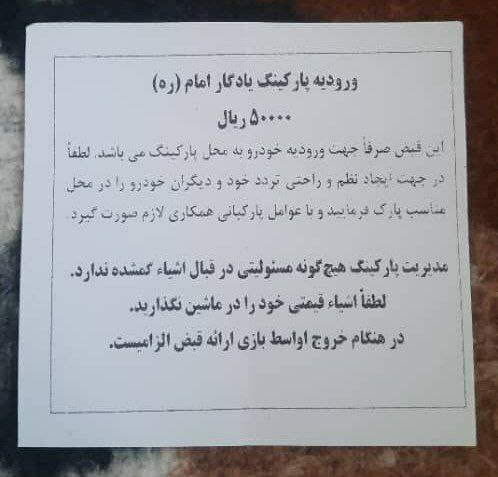 ورودیه پارکینگ یادگار امام (ره)
۵۰۰۰۰ ریال
این قبض صرفاً جهت ورودیه خودرو به محل پارکینگ می باشد. لطفاً
در جهت ایجاد نظم و راحتی تردد خود و دیگران خودرو را در محل
مناسب پارک فرمایید و با عوامل پارکبانی همکاری لازم صورت گیرد.
مدیریت پارکینگ هیچ‌گونه مسئولیتی در قبال اشیاء گمشده ندارد.
لطفاً اشیاء قیمتی خود را در ماشین نگذارید.
در هنگام خروج اواسط بازی ارائه قبض الزامیست.